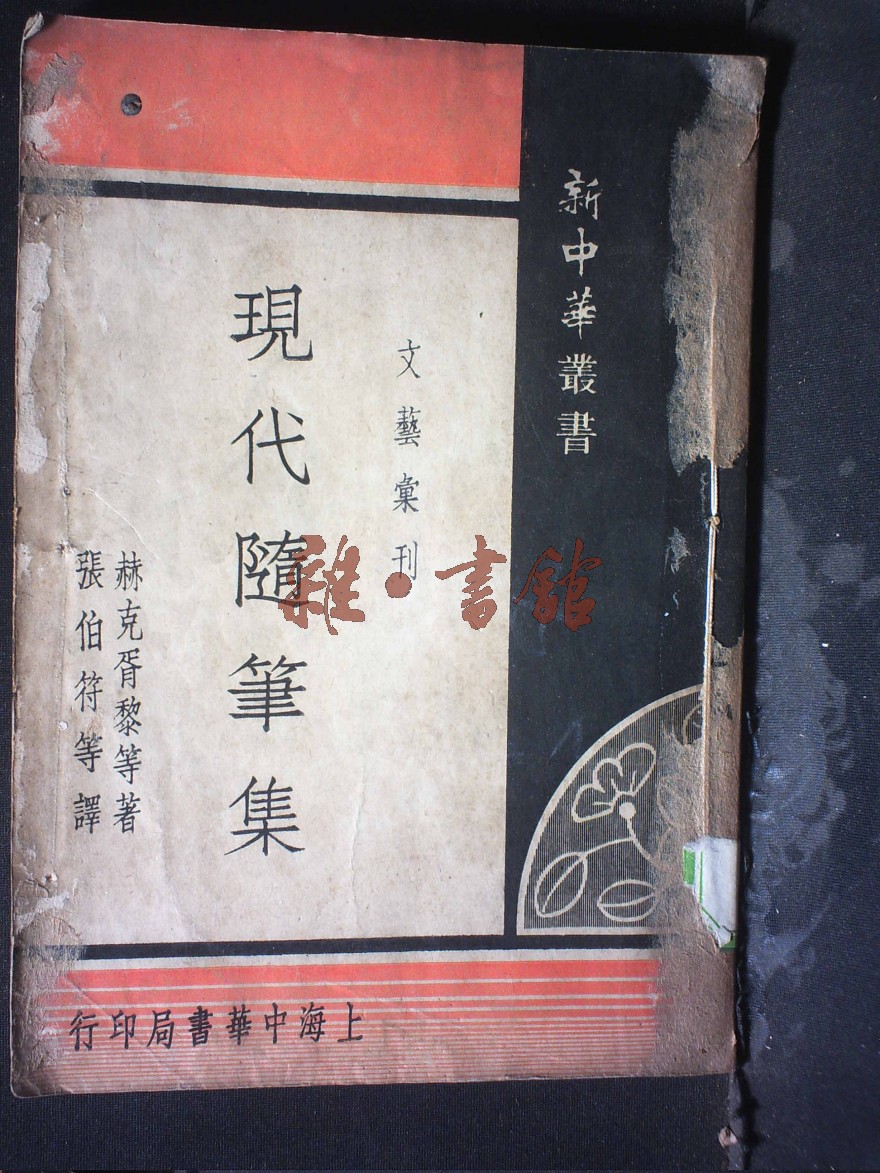 新中華叢書
文藝彙刊
現代隨筆集
赫克胥黎等著
張伯符等譯
上海中華書局印行
雜·書館